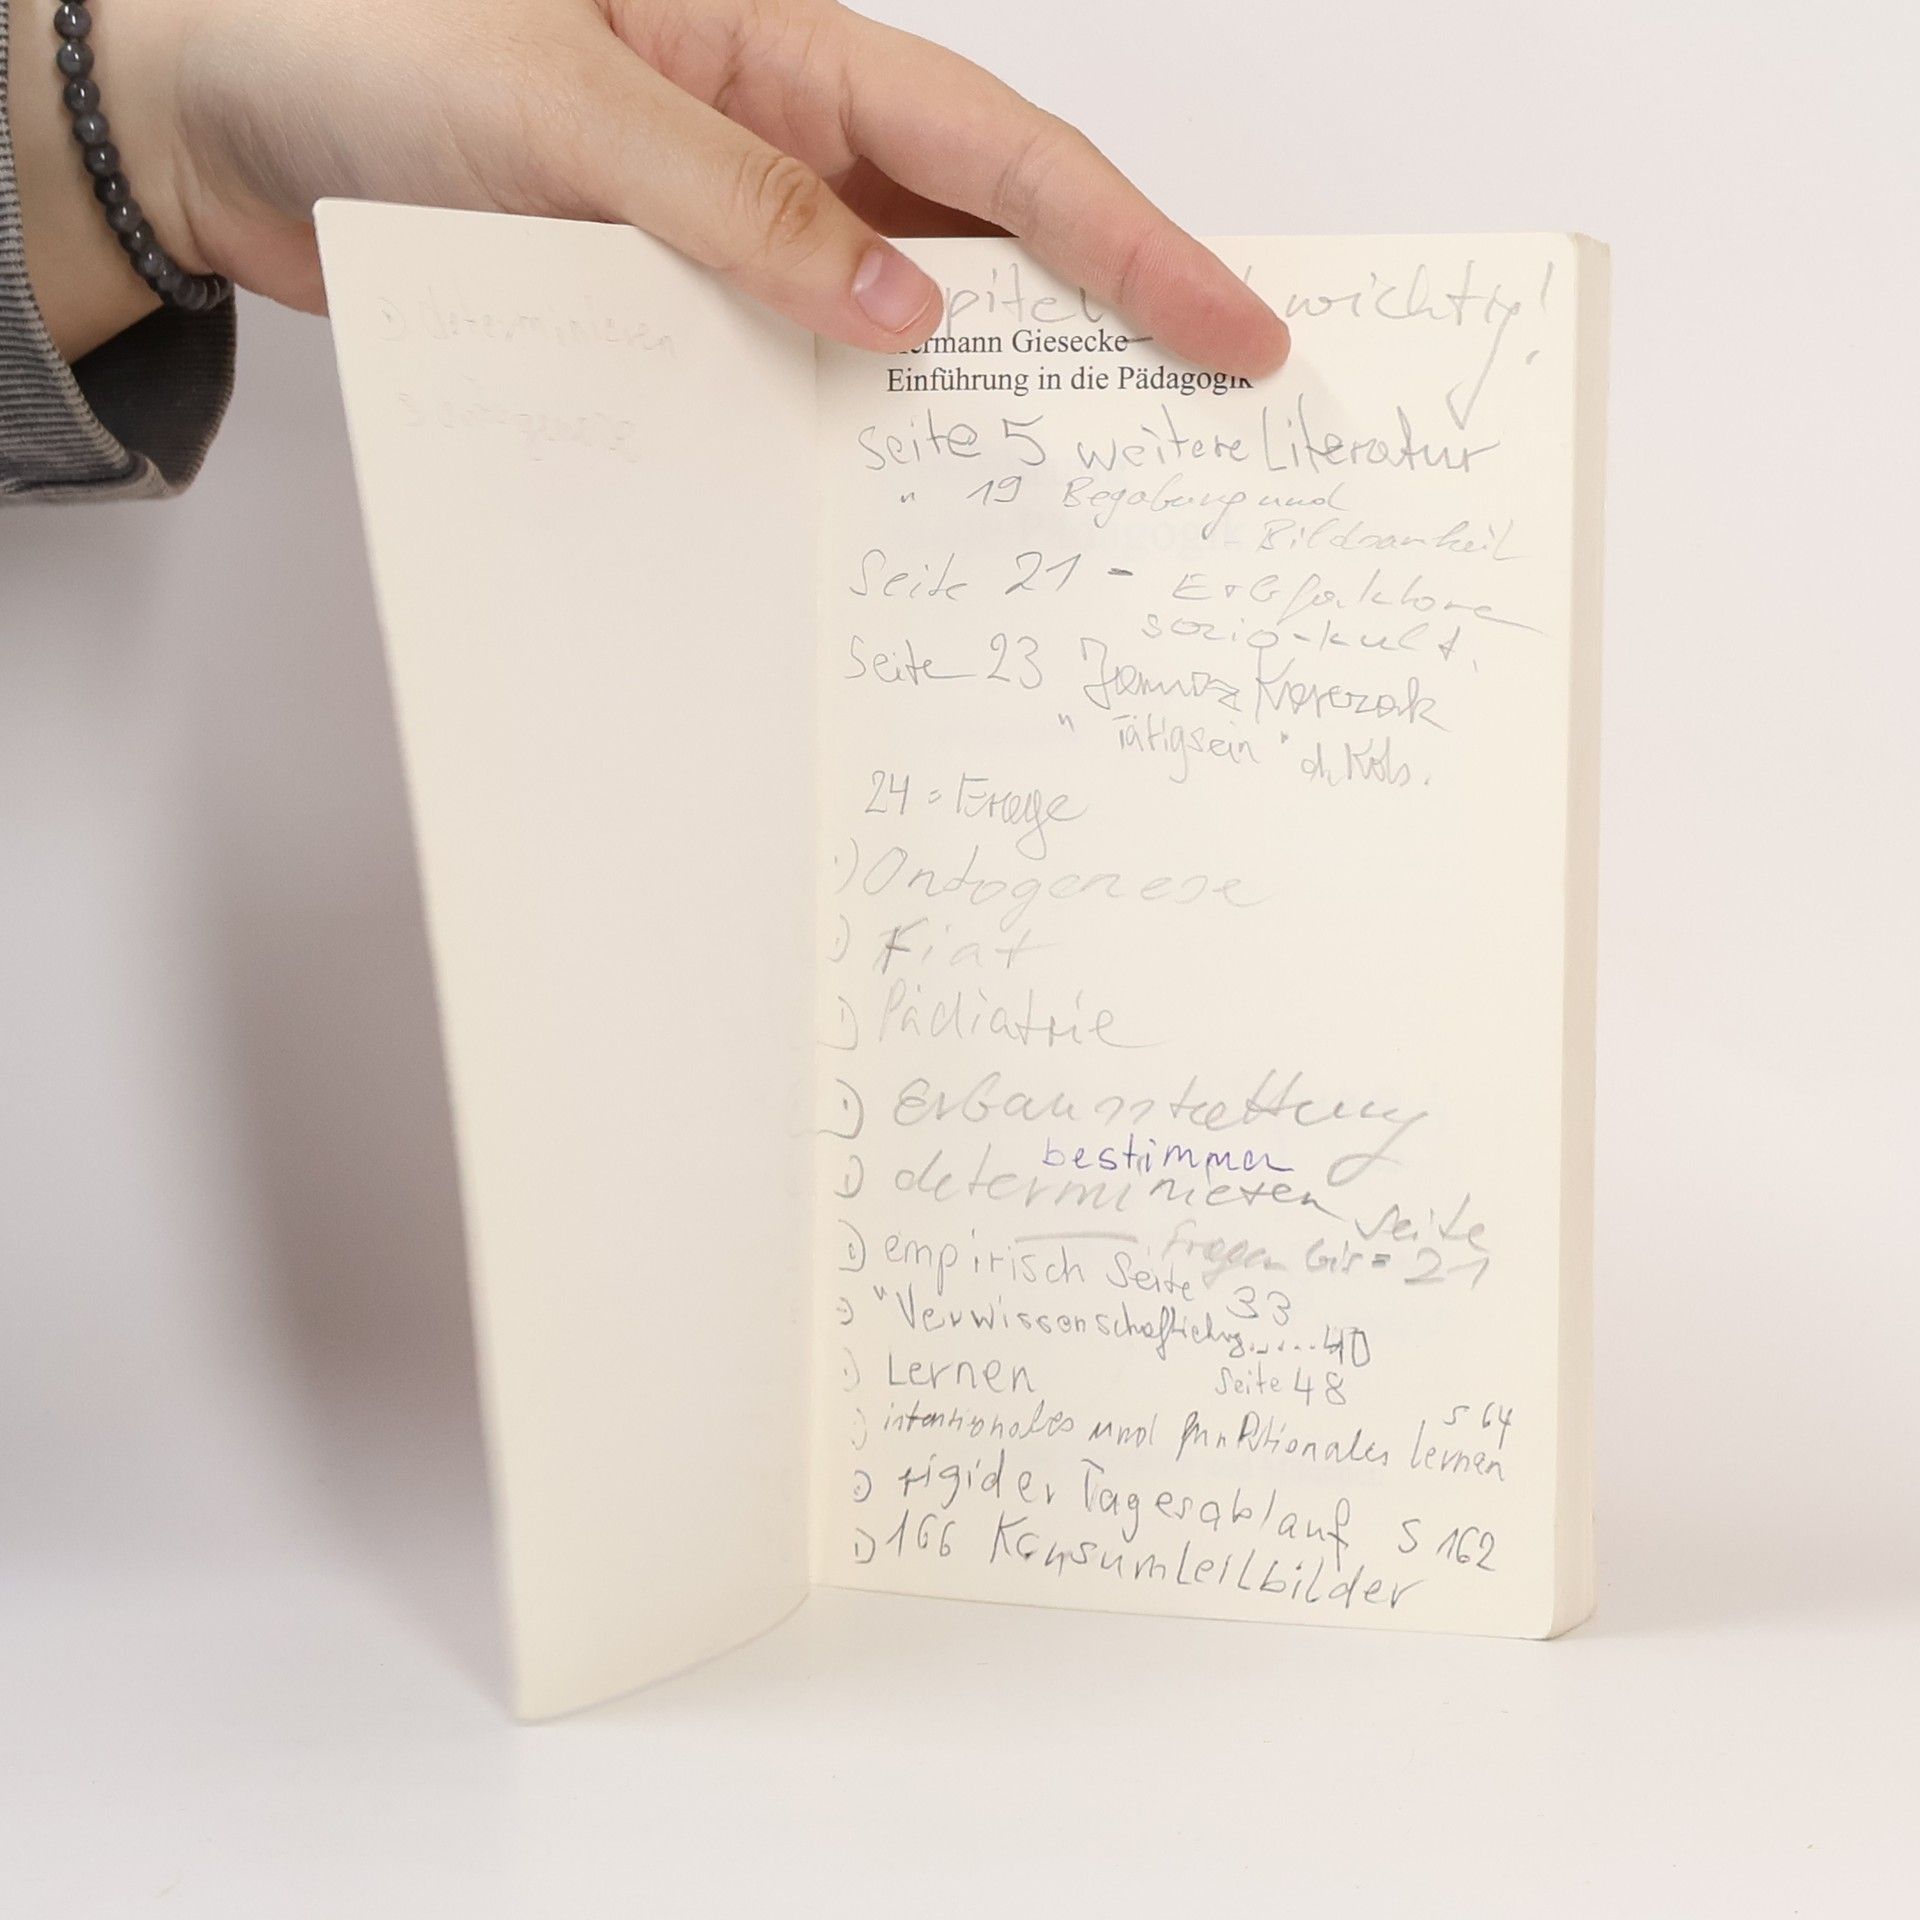 wichtig!
Hermann Giesecke
Einführung in die Pädagogik
Seite 5 weitere Literatur
" 19 Begabung und
Bildsamkeit
Seite 21 - Erbfaktoren
sozio-kult.
Seite 23 Janusz Korczak
"Tätigsein"
24 = Frage
Ontogenese
Fiat
Pädiatrie
Erbausstattung
bestimmen
determinieren
Seite
Fragen bis = 21
empirisch Seite 33
"Verwissenschaftlichung.....40
Lernen Seite 48
S 64
intentionales und funktionales lernen
rigider Tagesablauf S 162
166 Konsumleitbilder
determinieren